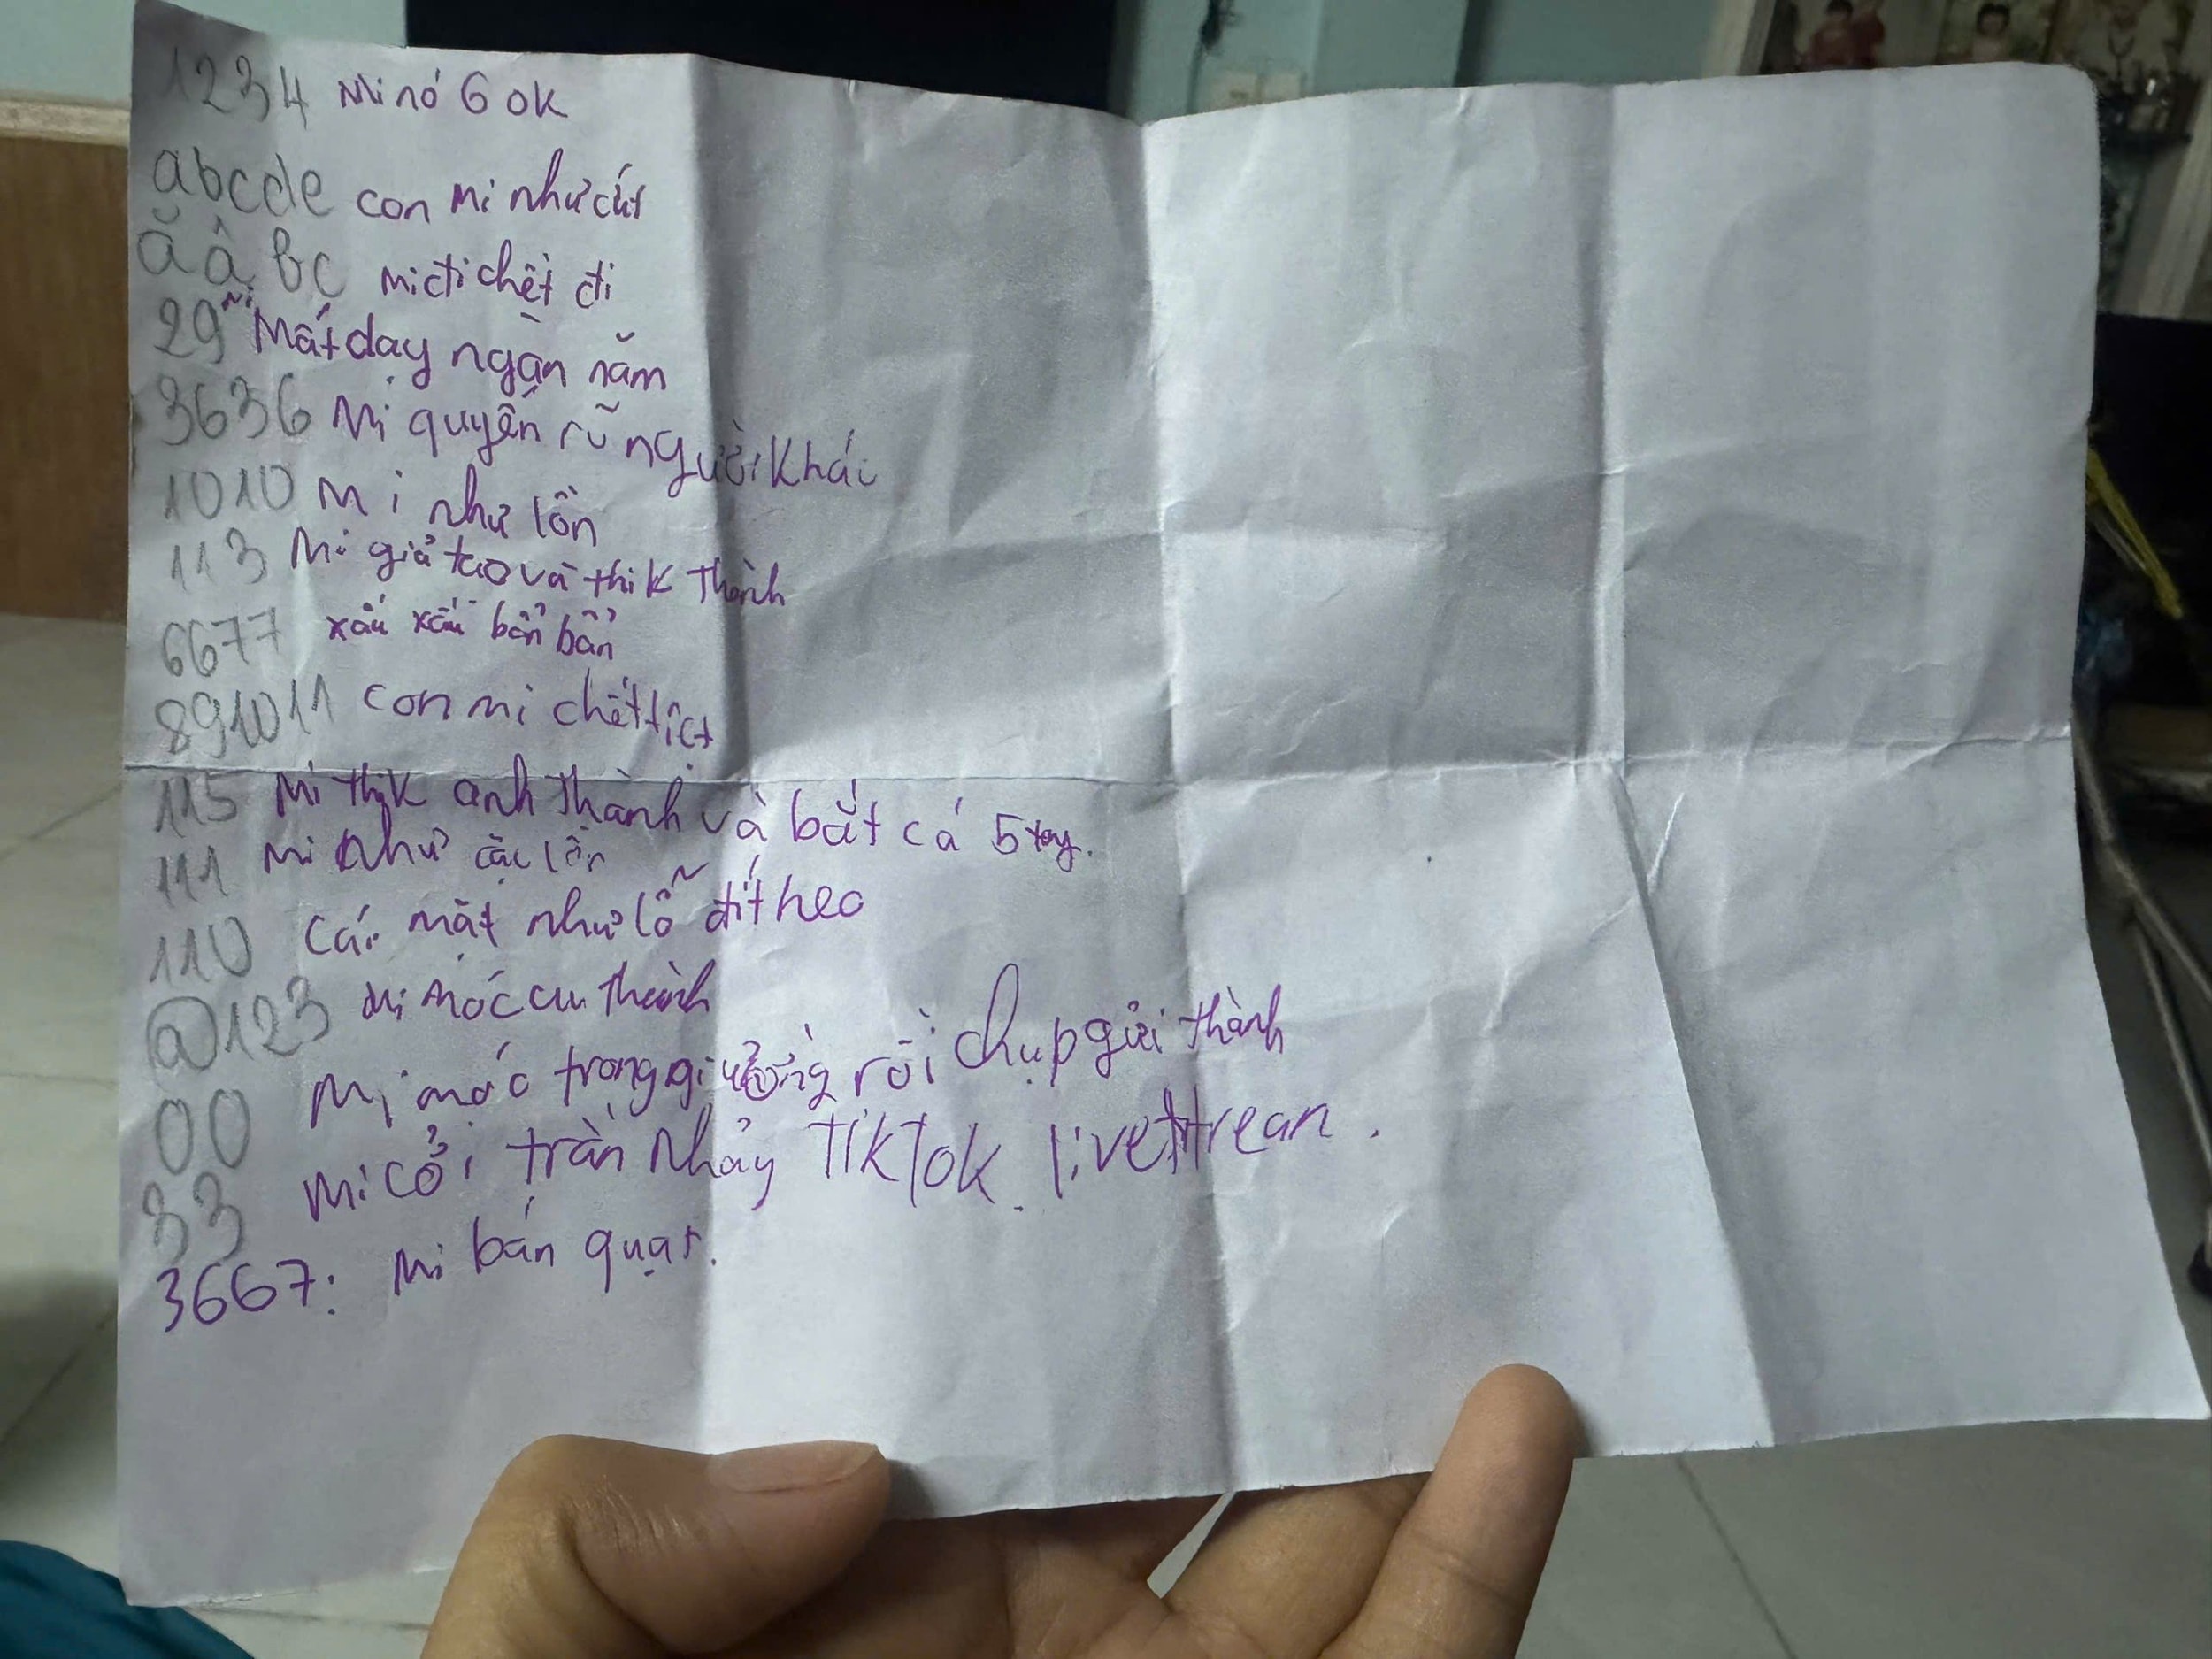 1234 Mi nó G ok
abcde con mi như cút
ă â bc mi đi chết đi
29 Mi mất dạy ngàn năm
3636 Mi quyến rũ người khác
1010 Mi như lồn
113 Mi giả tạo và thik Thành
6677 xấu xấu bẩn bẩn
891011 con mi chết tịt
115 Mi thik anh Thành và bắt cá 5 tay.
111 Mi như cặc lồn
110 Cái mặt như lỗ đít heo
@123 Mi móc cu Thành
00 Mi móc trong giường rồi chụp gửi thành
33 Mi cởi trần nhảy TikTok livestrean.
3667: Mi bán quạt.